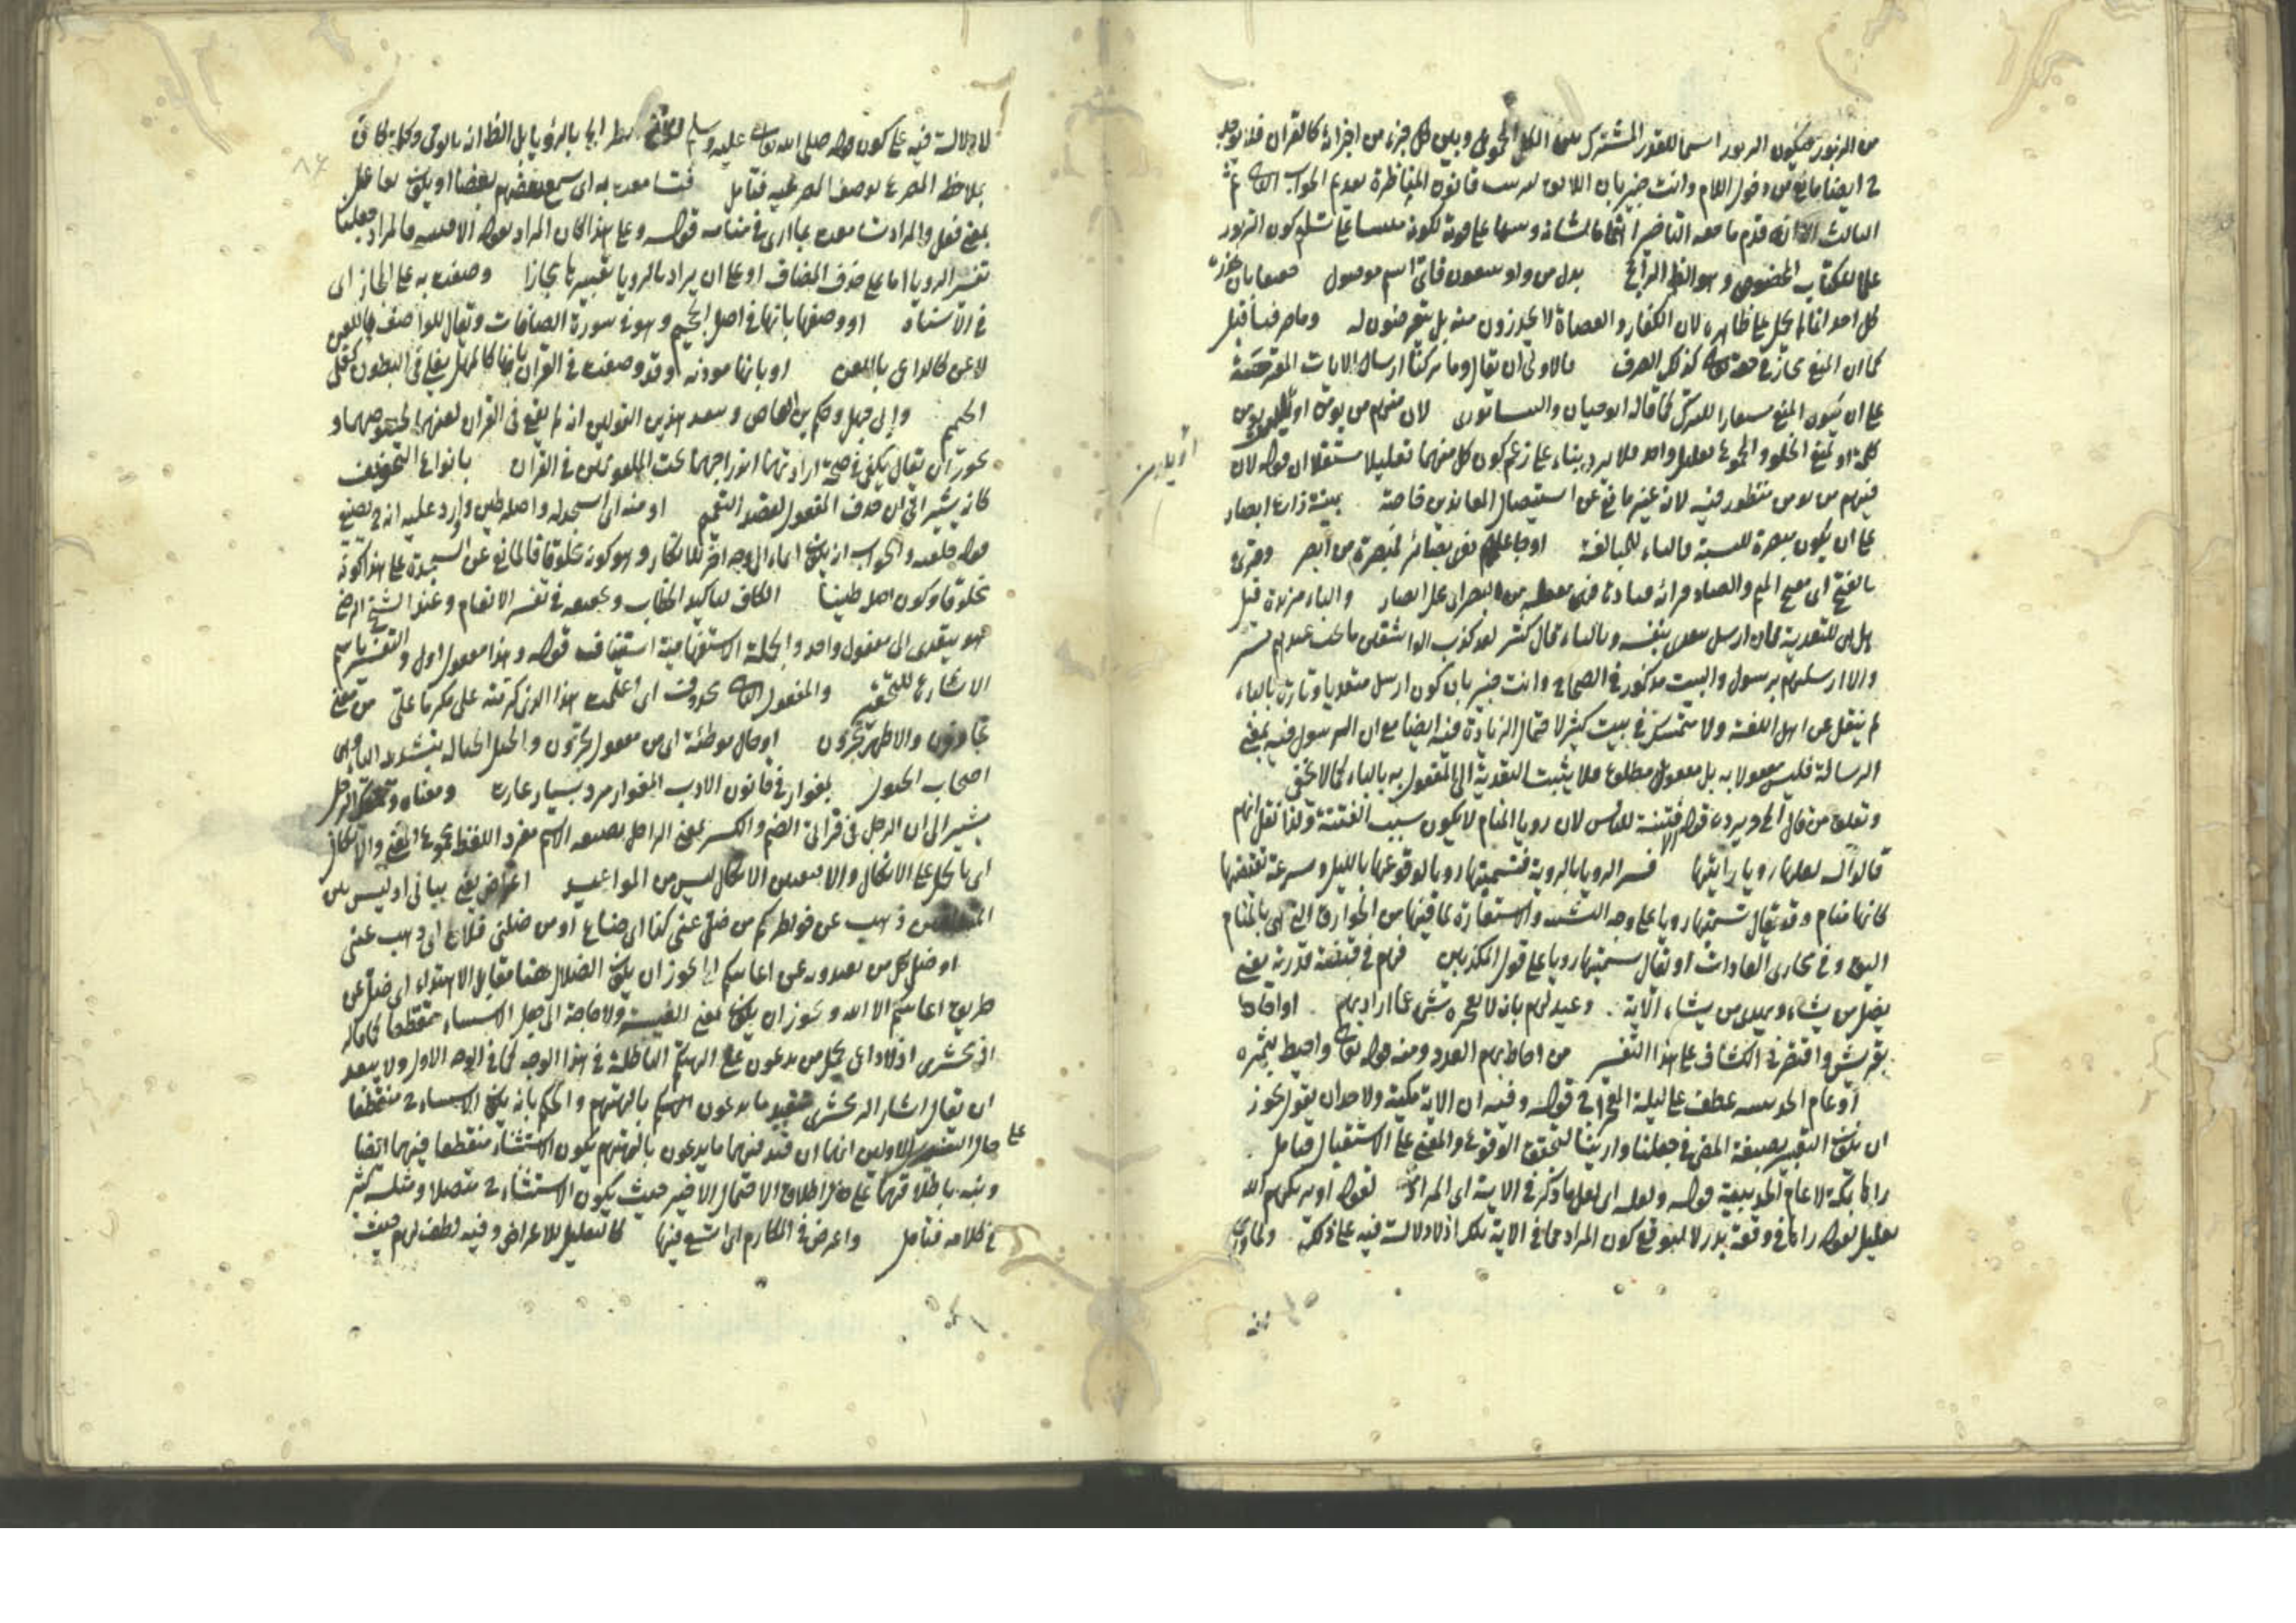 من الزبور فيكون الزبور اسما للقدر المشترك بين الكل المجموعي وبين كل جزء من اجزائه كالقرآن فلا يوجد
ح ايضا مانع من دخول اللام وانت خبير بان اللائق بترتيب قانون المناظرة تقديم الجواب
الثالث الا انه قدم ما معه التاضير اهتماما لشانه وتنبيها على قوته لكونه مبنيا على تسليم كون الزبور
علما للكتاب المخصوص وهو الظ الراجح بدل من واو يبتغون فاي اسم موصول حقيقا بان يحذره
كل احد انما لم يحمل على ظاهره لان الكفار والعصاة لا يحذرون منه بل يتعرضون له وما صرفنا قيل
كما ان المنع محاز في حقه تعالى كذلك الصرف فالاولى ان يقال وما تركنا ارسال الايات المقترحة
على ان يكون المنع مستعارا للترك كما قاله ابو حيان لان منهم من يؤمن او يلد من يؤمن
كلمة او لمنع الخلو والمجموع تعليل واحد فلا يرد بناء على زعم كون كل منهما تعليلا مستقلا ان قوله لان
فيهم من يؤمن منظور فيه لانه غير مانع عن استيصال المعاندين خاصة بينة ذات ابصار
على ان يكون مبصرة للنسبة والتاء للمبالغة او جاعلتهم ذوى بصائر لمبصرة من ابصر وقرئ
بالفتح اى بفتح الميم والصاد والباء مزيدة قيل
بل هى للتعدية فان ارسل يعدى بنفسه وبالباء قال كثير لقد كذب الواشون ما بحت عندهم بسر
ولا ارسلتهم برسول والبيت مذكور في الصحاح وانت خبير بان كون ارسل متعديا وتارة بالباء
لم ينقل عن اهل اللغة ولا متمسك في بيت كثير لاحتمال الزيادة فيه ايضا مع ان الرسول فيه بمعنى
الرسالة فليس مفعولا به بل مفعول مطلق فلا يثبت التعدية الى المفعول به بالباء كما لا يخفى
وتعلق من قال الخ ويرده قوله الا فتنة للناس لان رويا المنام لا يكون سبب الفتنة ولذا نقل انهم
قالوا له لعلها رويا رايتها فسر الرويا بالروية فتسميتها رويا لوقوعها بالليل وسرعة تقضيها
كانها منام وقد يقال تسميتها رويا على وجه التشبيه والاستعارة لما فيها من الخوارق التى هى بالمنام
اليق في مجارى العادات او يقال سميتها رويا على قول المكذبين فهم في قبضة قدرته يعنى
يضل من يشاء ويهدى من يشاء الاية وعيد لهم بانه لا يعجزه شئ عما اراد بهم او احاط
بقريش واقتصر في الكشاف على هذا التفسير من احاط بهم العدو ومنه قوله تعالى واحيط بثمره
او عام الحديبية عطف على ليلة المعراج في قوله وفيه ان الاية مكية ولاحد ان يقول يجوز
ان يكون التعبير بصيغة المضى في جعلنا واريناك لتحقق الوقوع والمعنى على الاستقبال فتامل
راها بمكة لا عام الحديبية قوله ولعله اى لعل ما ذكر في الاية اى المراد لقوله اذ يريكهم الله
تعليل لقوله راها في وقعة بدر لا لتوقع كون المراد مما في الاية تلك اذ لا دلالة فيه على ذلك
او يلد من
لا دلالة فيه على كون قوله صلى الله تعالى عليه وسلم بل الظ انه بالوحى
بملاحظة المصرع بوصف المصرع فيه فتامل فتسامعت به اى سمع بعضهم بعضا او يكون تفاعل
بمعنى فعل والمراد سامعت بما ارى في منامه قوله وعلى هذا كان المراد بقوله الا فتنة
تفسير الرويا اما على حذف المضاف او على ان يراد بالرويا تعبيرها مجازا وصفت به على المجاز اى
في الاسناد او وصفها بانها في اصل الجحيم وهو في سورة الصافات ويقال للواصف باللعن
لاعن كالداعى باللعن او بانها موذنه وقد وصفت في القرآن بانها كالمهل يغلى في البطون كغلى
الحميم وابى جهل وحكم بن العاص وبعد هذين القولين انه لم يقع في القرآن لعنهما بخصوصهما و
يجوز ان يقال يكفى في صحة ارادتهما اندراجهما تحت الملعونين في القرآن بانواع التخويف
كانه يشير الى ان حذف المفعول لقصد التعميم او منه اى اسجد له واصله طين واورد عليه انه ح يضيع
قوله خلقته والجواب ان يكون ايماء الى وجه آخر للانكار وهو كونه مخلوقا فالمانع عن السجدة على هذا كونه
مخلوقا وكون اصله طينا الكاف لتاكيد الخطاب وتحقيقه في تفسير الانعام وعند الشيخ الرضى
هو يتعدى الى مفعول واحد والجملة الاستفهامية استيناف قوله وهذا مفعول اول والتفسير باسم
الاشارة للتحقير والمفعول الثانى محذوف اى اعلمت هذا الذى كرمته على مكرما على
تجازون والاظهر تجزون او حال موطئة اى من مفعول تجزون والخيل الخيالة بتشديد الياء اى
اصحاب الخيول بمغوار في قانون الادب المغوار مرد بسيار غارت
يشير الى ان الرجل في قراءتى الضم والكسر بمعنى الراجل
اى باتكال على الاتكال والا فنفس الاتكال ليس من المواعيد اعتراض يعنى بيانى اذ ليس بين
ذهب عن خواطركم من ضل عنى كذا اى ضاع او من ضلنى فلان اى ذهب عنى
او ضل كل من تعبدونه عن اعانتكم الخ يجوز ان يكون الضلال ههنا مقابل الاهتداء اى ضل عن
طريق اعانتكم الا الله ويجوز ان يكون بمعنى الغيبة ولا حاجة الى جعل الاستثناء منقطعا كما قاله
الزمخشرى اذ لا داعى لحمل من تدعون على آلهتهم الباطلة في هذا الوجه كما في الوجه الاول ولا يبعد
ان يقال اشار الزمخشرى بتقييد ما يدعون بآلهتهم والحكم بانه يكون الاستثناء ح منقطعا
على حال التفسيرين الاولين انهما ان قيد فيهما ما يدعون بآلهتهم يكون الاستثناء منقطعا فيهما ايضا
ونبه باطلاقهما على حال اطلاق الاحتمال الاخير حيث يكون الاستثناء ح متصلا ومثله كثير
في كلامه فتامل واعرض في المكارم اى اتسع فيها كالتعليل للاعراض وفيه لطف لهم حيث